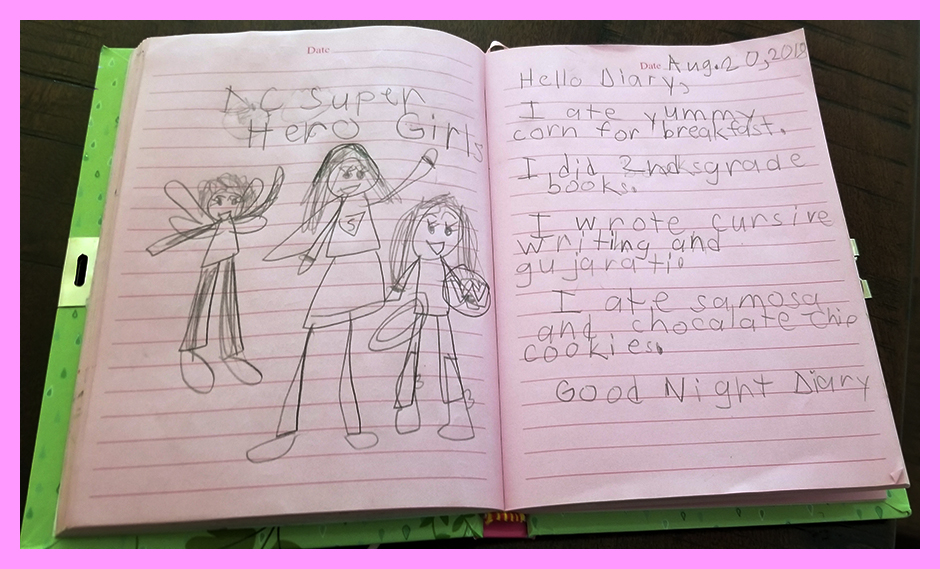 Date
DC Super
Hero Girls
S
W
B
B
Date Aug.20,2018
Hello Diary,
I ate yummy
corn for breakfast.
I did grade
books.
I wrote cursive
writing and
gujarati.
I ate samosa
and chocalate chip
cookies.
Good Night Diary